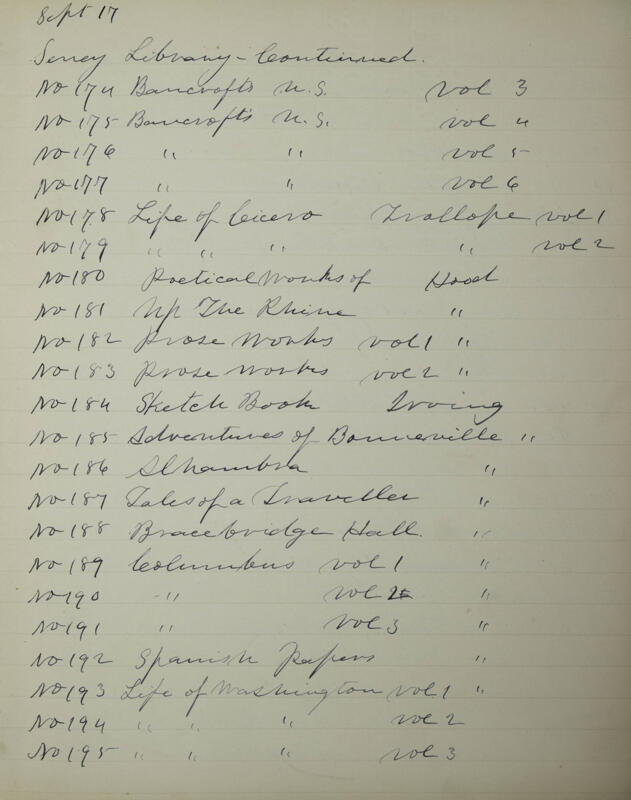 Sept 17
Seney Library - Continued.
No 174 Bancroft's U.S. vol 3
No 175 Bancroft's U.S. vol 4
No 176 " " vol 5
No 177 " " vol 6
No 178 Life of Cicero Trollope vol 1
No 179 " " " " vol 2
No 180 Poetical Works of Hood
No 181 Up The Rhine "
No 182 Prose Works vol 1 "
No 183 Prose Works vol 2 "
No 184 Sketch Book Irving
No 185 Adventures of Bonneville "
No 186 Alhambra "
No 187 Tales of a Traveller "
No 188 Bracebridge Hall. "
No 189 Columbus vol 1 "
No 190 " vol 2 "
No 191 " vol 3 "
No 192 Spanish Papers "
No 193 Life of Washington vol 1 "
No 194 " " " vol 2
No 195 " " " vol 3